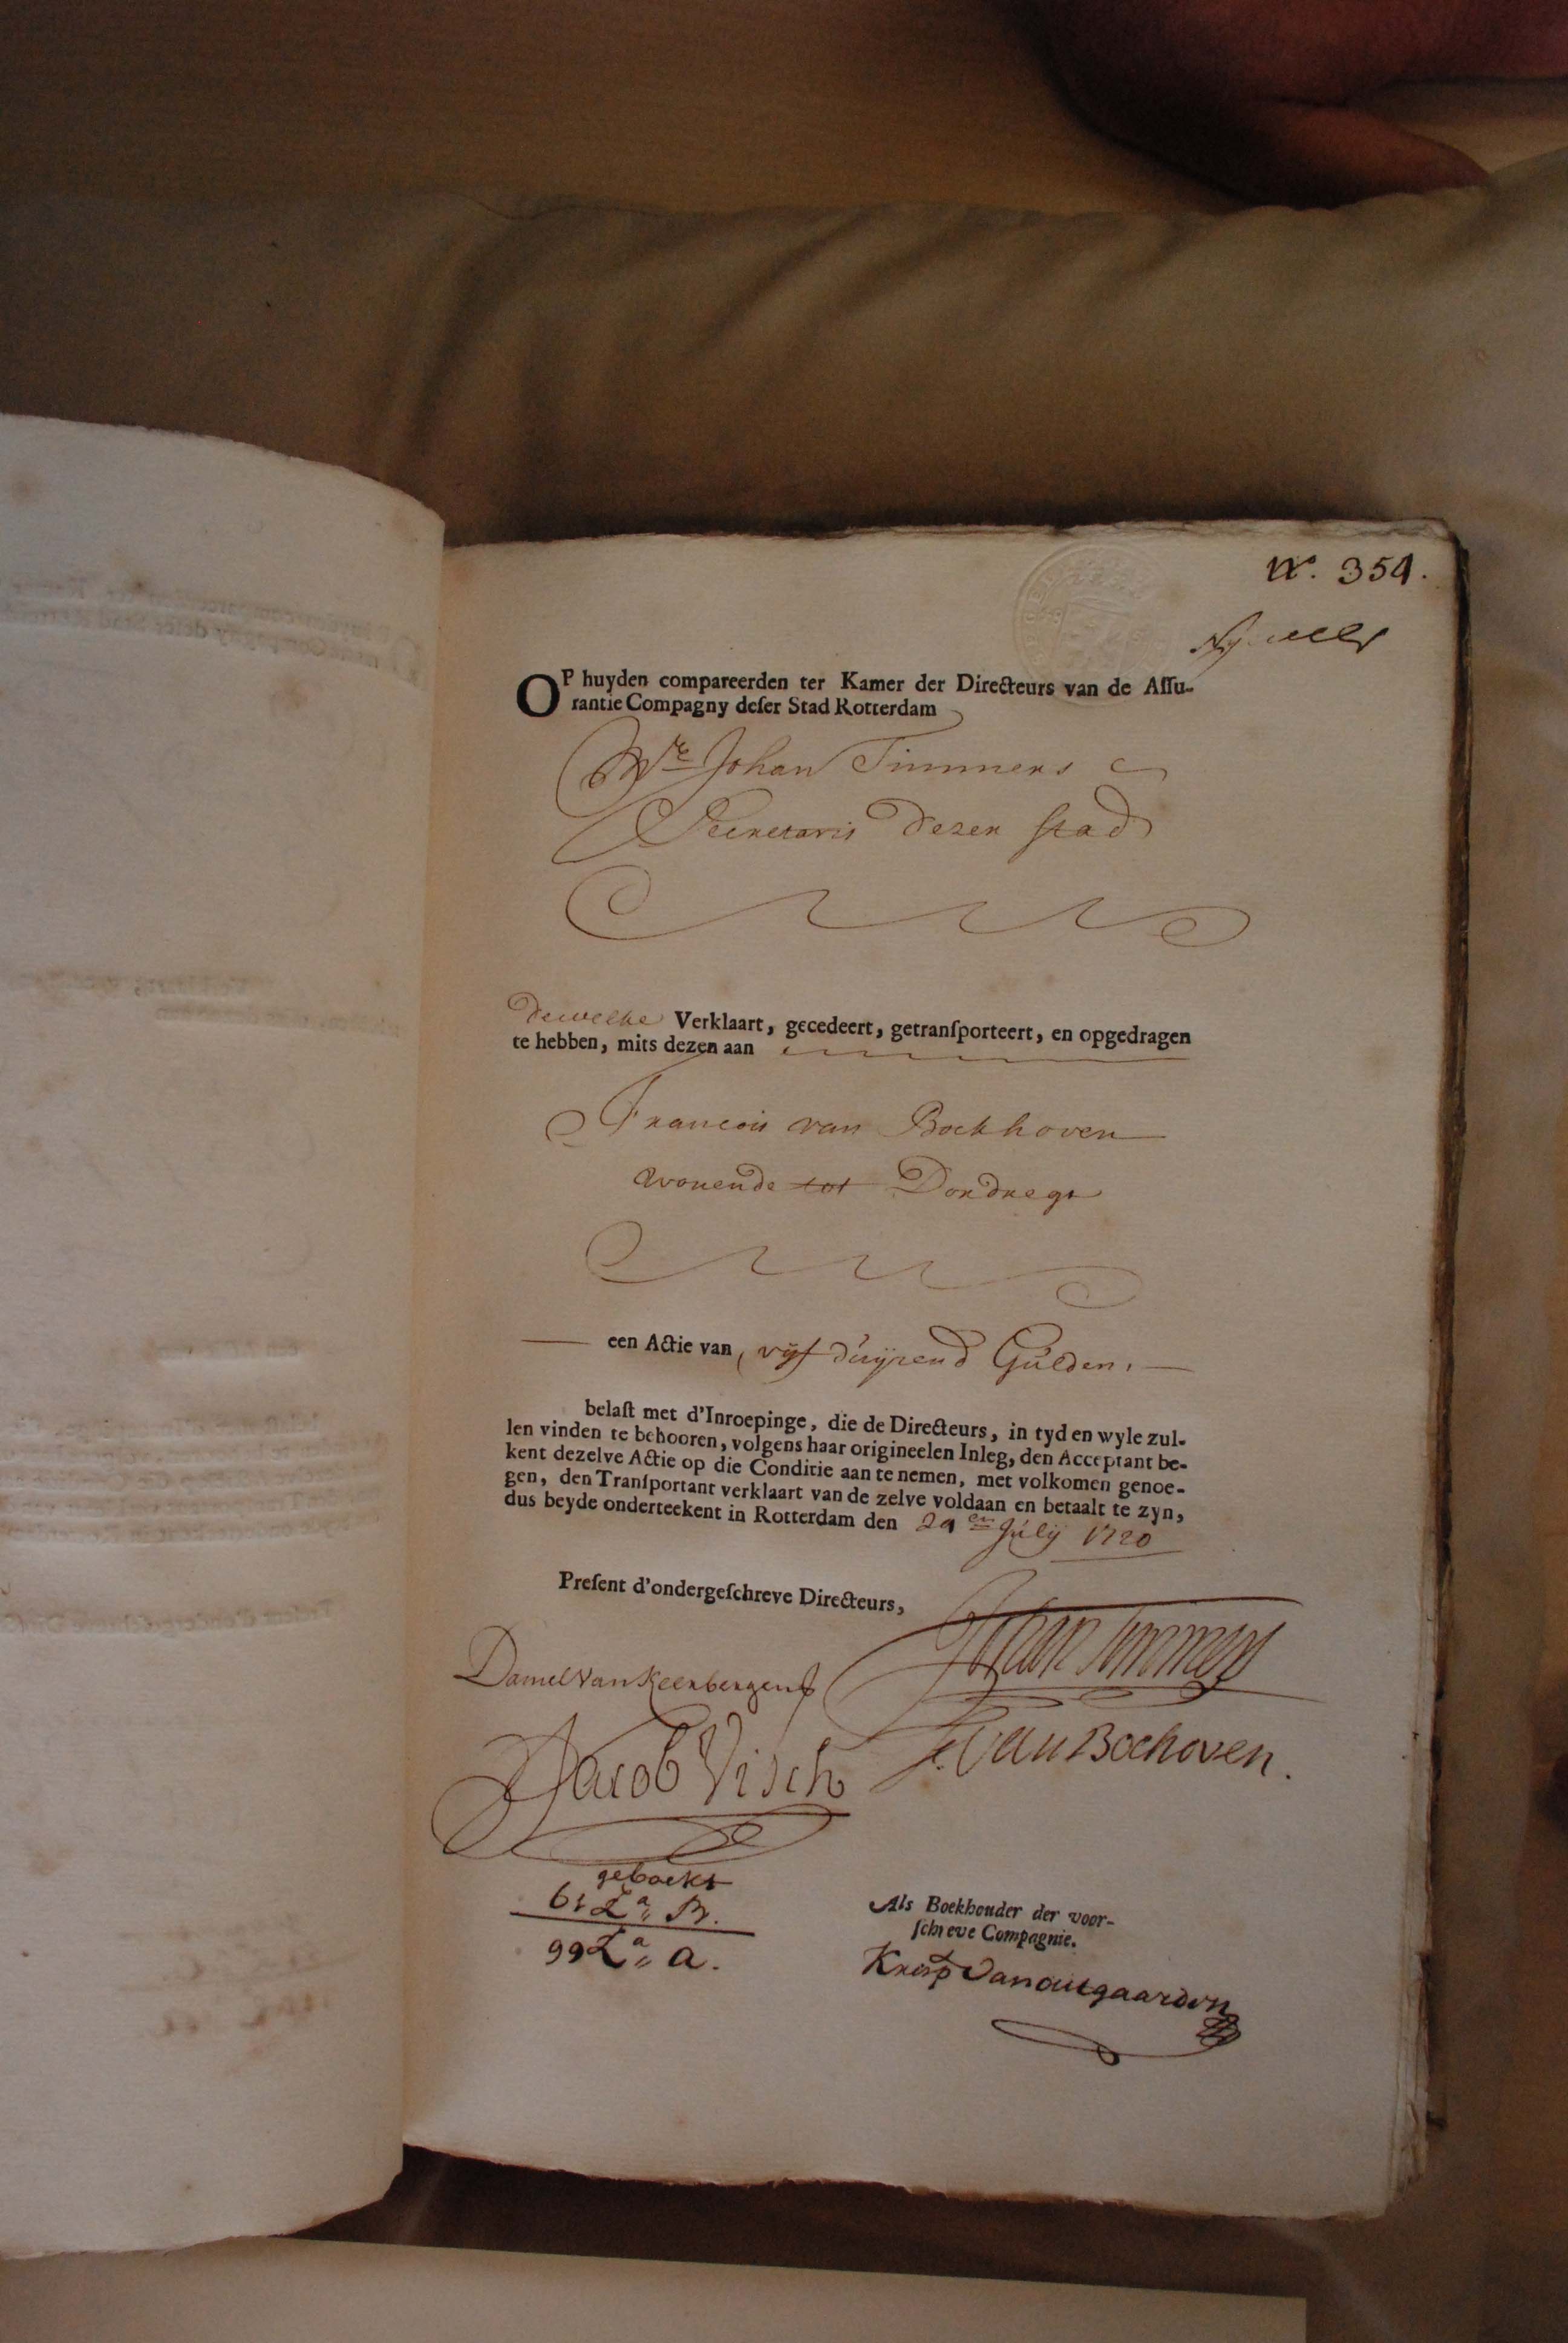 No. 354.
OP huyden compareerden ter Kamer der Directeurs van de Aſſu-
rantie Compagny deſer Stad Rotterdam
Mr Johan Timmers
Secretaris dezer stad
dewelke Verklaart, gecedeert, getranſporteert, en opgedragen
te hebben, mits dezen aan
Francois van Bockhoven
wonende tot Dordregt
een Actie van vijf duijzend Gulden.
belaſt met d'Inroepinge, die de Directeurs, in tyd en wyle zul-
len vinden te behooren, volgens haar origineelen Inleg, den Acceptant be-
kent dezelve Actie op die Conditie aan te nemen, met volkomen genoe-
gen, den Tranſportant verklaart van de zelve voldaan en betaalt te zyn,
dus beyde onderteekent in Rotterdam den 29en Julij 1720
Preſent d'ondergeſchreve Directeurs,
Johan Timmers
Daniel van Keerbergen
F. van Bochoven.
Jacob Visch
geboekt
61 La B.
99 La a.
Als Boekhouder der voor-
ſchreve Compagnie.
Kresp Vanoutgaarden